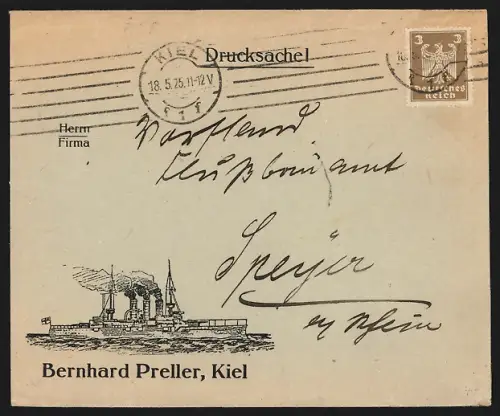 Drucksache!
KIEL
18.5.25.11-12V
* 1 f
3 3
Deutsches
Reich
Herrn
Firma
Vorstand
Flußbauamt
Speyer
a/ Rhein
Bernhard Preller, Kiel